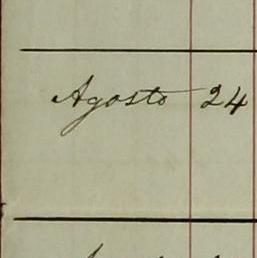 Agosto 24